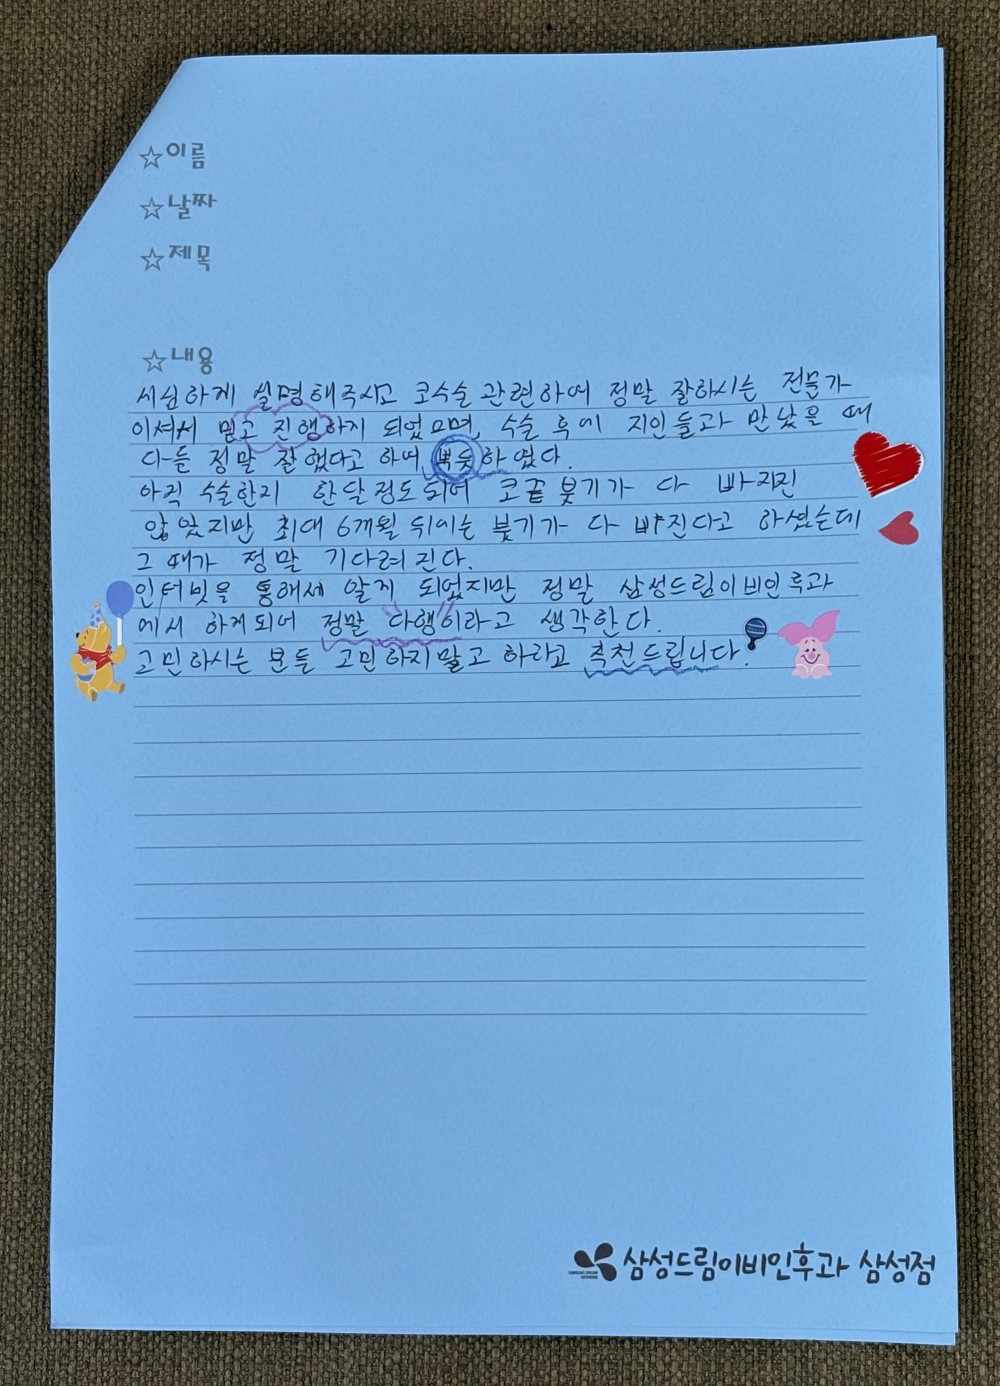 ☆이름
☆날짜
☆제목
☆내용
세심하게 설명해주시고 코수술 관련하여 정말 잘하시는 전문가
이셔서 믿고 진행하게 되었으며, 수술 후에 지인들과 만났을 때
다들 정말 잘했다고 하여 뿌듯하였다.
아직 수술한지 한달정도되어 코끝 붓기가 다 빠지진
않았지만 최대 6개월 뒤에는 붓기가 다 빠진다고 하셨는데
그 때가 정말 기다려진다.
인터넷을 통해서 알게 되었지만 정말 삼성드림이비인후과
에서 하게되어 정말 다행이라고 생각한다.
고민하시는 분들 고민하지말고 하라고 추천드립니다.
삼성드림이비인후과 삼성점